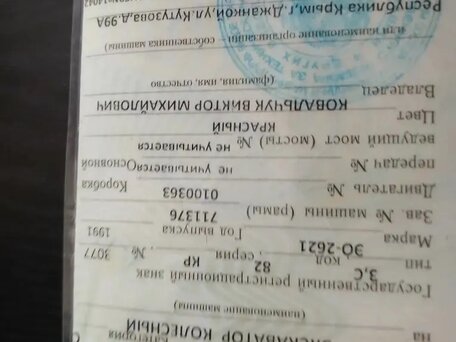 На ЭКСКАВАТОР КОЛЕСНЫЙ
(наименование машины)
Государственный регистрационный знак
тип 3,С код 82 серия КР № 3077
Марка ЭО-2621 Год выпуска 1991
Зав. № машины (рамы) 711376
Двигатель № 0100363 Коробка
передач не учитывается Основной
ведущий мост (мосты) № не учитывается
Цвет КРАСНЫЙ
КОВАЛЬЧУК ВИКТОР МИХАЙЛОВИЧ
Владелец
(фамилия, имя, отчество)
или наименование организации — собственника машины)
Республика Крым, г. Джанкой, ул. Кутузова, д. 99А